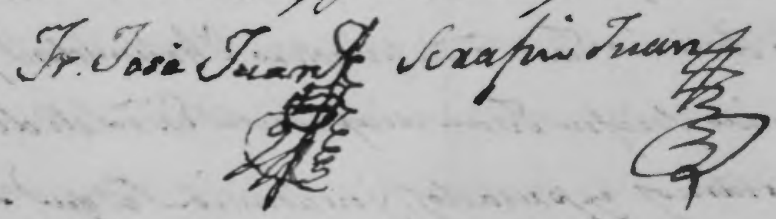 Fr. José Juan Serafin Juan